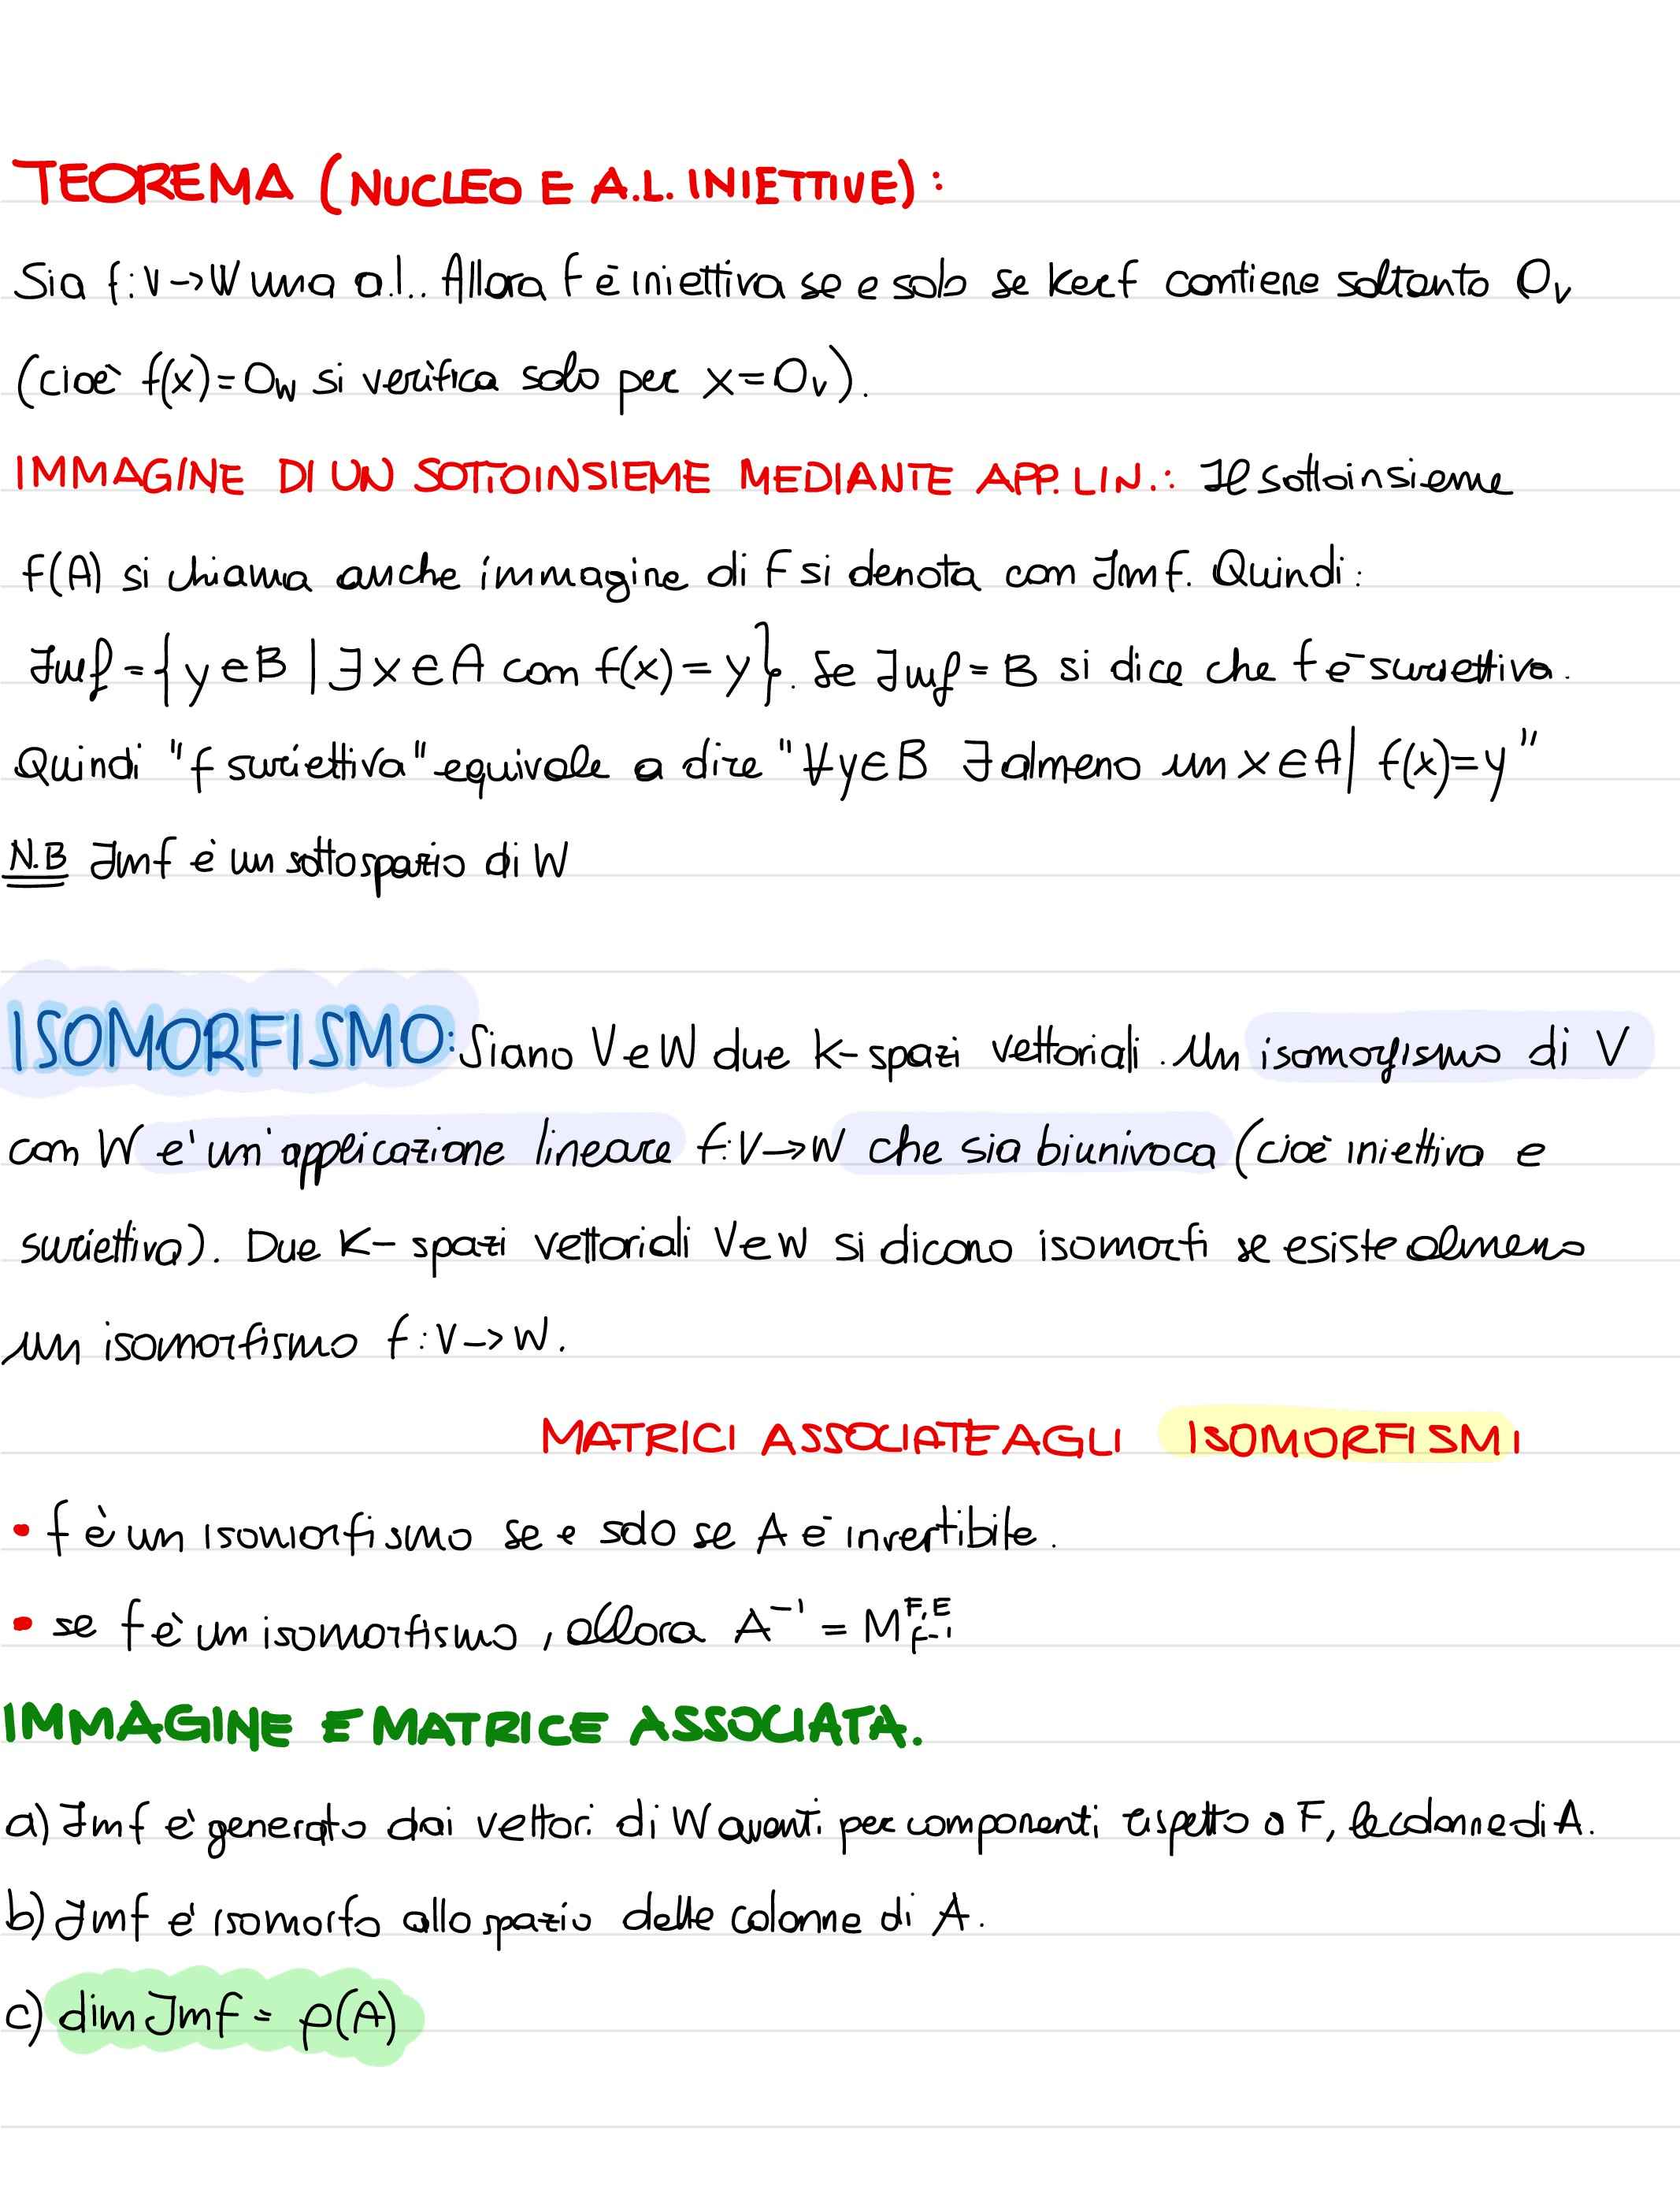 TEOREMA (NUCLEO E A.L. INIETTIVE):
Sia f:V→W una a.l.. Allora f è iniettiva se e solo se Kerf contiene soltanto 0ᵥ
(cioè f(x)=0_W si verifica solo per x=0ᵥ).
IMMAGINE DI UN SOTTOINSIEME MEDIANTE APP. LIN.: Il sottoinsieme
f(A) si chiama anche immagine di f si denota con Imf. Quindi:
Imf={y∈B | ∃x∈A con f(x)=y}. Se Imf=B si dice che f è suriettiva.
Quindi "f suriettiva" equivale a dire "∀y∈B ∃ almeno un x∈A| f(x)=y"
N.B Imf è un sottospazio di W
ISOMORFISMO: Siano V e W due K-spazi vettoriali. Un isomorfismo di V
con W e' un'applicazione lineare f:V→W che sia biunivoca (cioè iniettiva e
suriettiva). Due K-spazi vettoriali V e W si dicono isomorfi se esiste almeno
un isomorfismo f:V→W.
MATRICI ASSOCIATE AGLI ISOMORFISMI
• f è un isomorfismo se e solo se A è invertibile.
• se f è un isomorfismo, allora A⁻¹ = M_{f⁻¹}^{F,E}
IMMAGINE E MATRICE ASSOCIATA.
a) Imf e' generato dai vettori di W aventi per componenti rispetto a F, le colonne di A.
b) Imf e' isomorfo allo spazio delle colonne di A.
c) dim Imf = ρ(A)